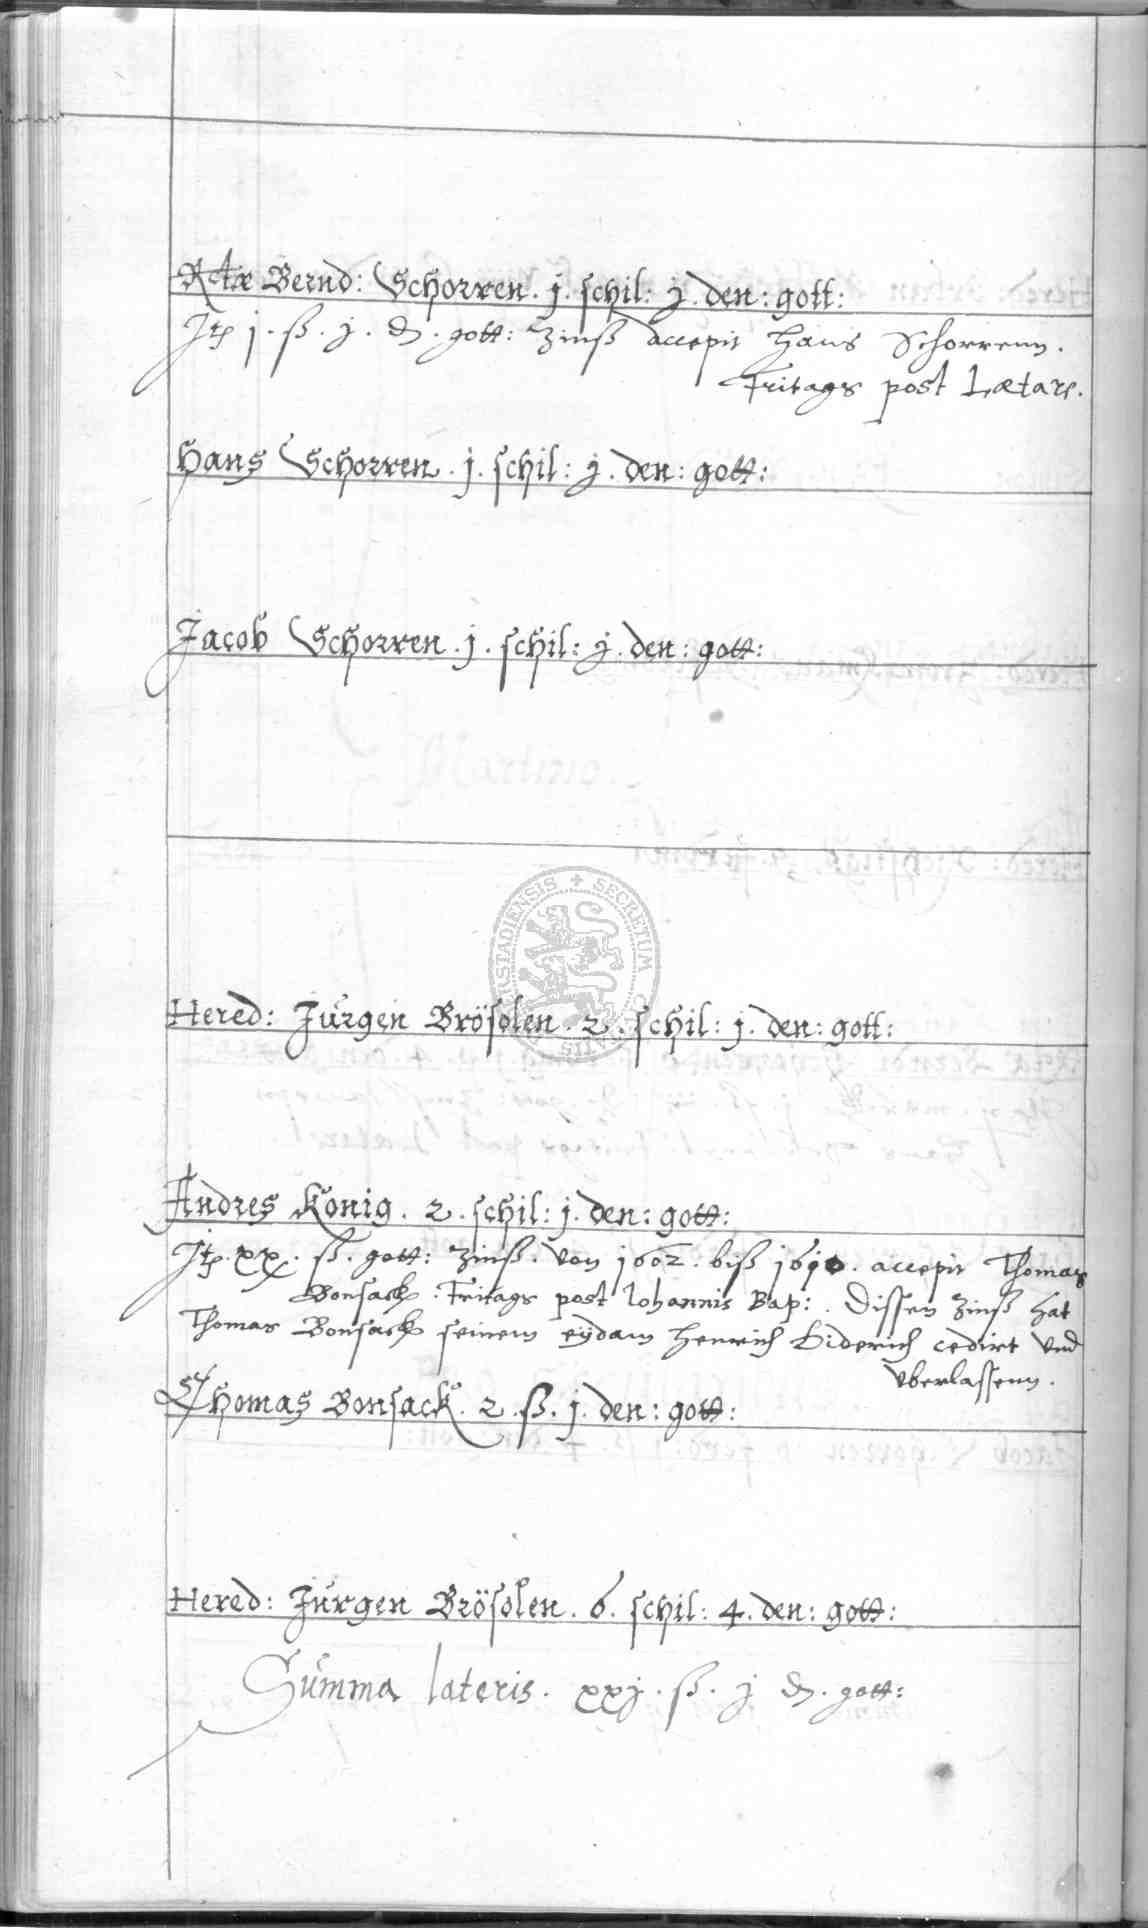 Rctæ Bernd: Schorren. j. schil: j. den: gott:
Itp j. ß. j. d. gott: Zinß accepit Hans Schorrenn.
Fritags post Lætare.
Hans Schorren. j. schil: j. den: gott:
Jacob Schorren. j. schil: j. den: gott:
Martino.
RSTADIENSIS + SECRETUM
Hered: Jürgen Brösolen. 2. schil: j. den: gott:
Andres König. 2. schil: j. den: gott:
Itp. xx. ß. gott: Zinß. von 1602. biß 1610. accepit Thomas
Bonsack. Fritags post Iohannis Bap: . Dissen Zinß hat
Thomas Bonsack seinem eÿdam Henrich Diderich cedirt vnd
vberlassenn.
Thomas Bonsack. 2. ß. j. den: gott:
Hered: Jürgen Brösolen. 6. schil: 4. den: gott:
Summa lateris. xxj. ß. j d. gott: